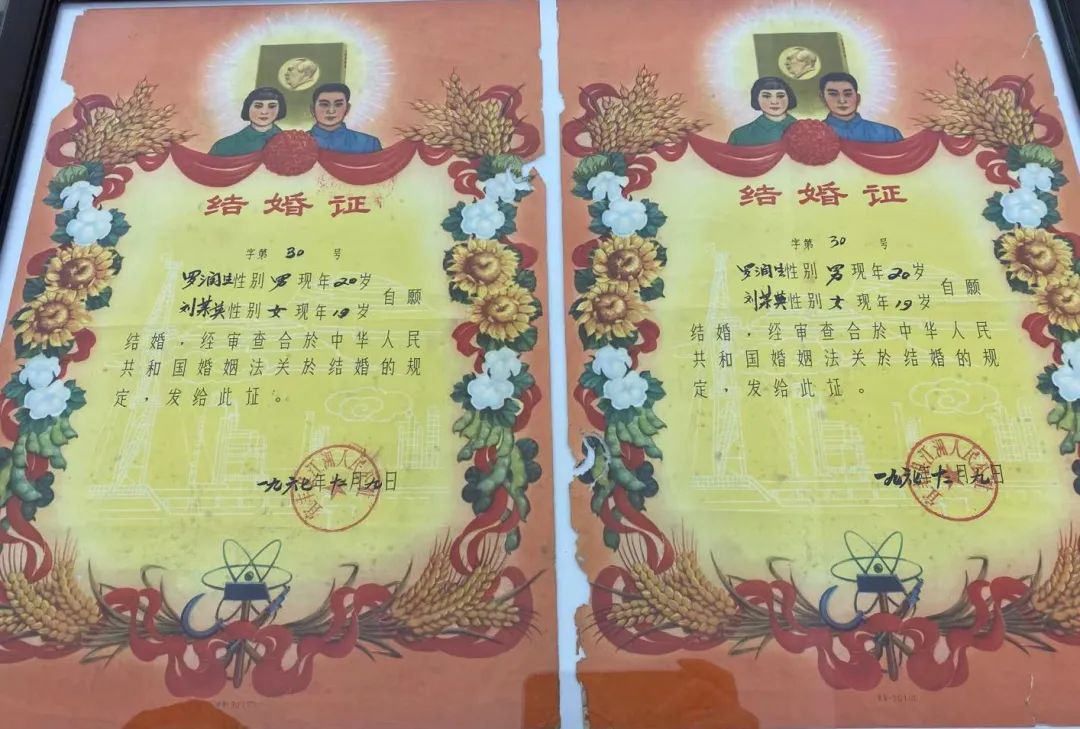 结婚证
字第 30 号
罗润生性别 男 现年20岁
自愿
刘荣英性别 女 现年19岁
结婚，经审查合於中华人民
共和国婚姻法关於结婚的规
定，发给此证。
一九六七年十二月九日
江洲人民
结婚证
字第 30 号
罗润生性别 男 现年20岁
自愿
刘荣英性别 女 现年19岁
结婚，经审查合於中华人民
共和国婚姻法关於结婚的规
定，发给此证。
一九六七年十二月九日
江洲人民